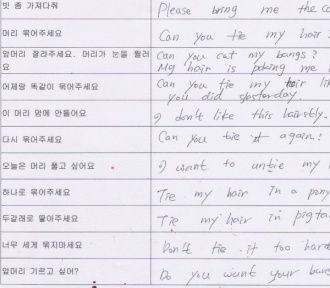 빗 좀 가져다줘
Please bring me the co
머리 묶어주세요
Can you tie my hair?
앞머리 잘라주세요. 머리가 눈을 찔러
요
Can you cut my bangs?
My hair is poking me
어제랑 똑같이 묶어주세요
Can you tie my hair li
you did yesterday.
이 머리 맘에 안들어요
I don't like this hairstly.
다시 묶어주세요
Can you tie it again?
오늘은 머리 풀고 싶어요
I want to untie my
하나로 묶어주세요
Tie my hair in a pony
두갈래로 땋아주세요
Tie my hair in pigta
너무 세게 묶지마세요
Don't tie it too hard
앞머리 기르고 싶어?
Do you want your bang